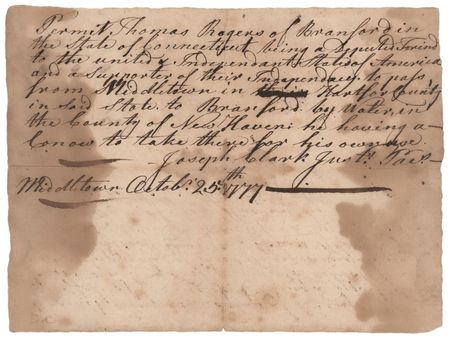 Permit Thomas Rogers of Branford in
the State of Connecticut being a Friend
to the united & Independant States of America
and a Supporter of their Independancy to pass
from Middltown in Hartford County
in Said State to Branford by Water, in
the County of New Haven: he having a
to take there for his own use
Joseph Clark Justs Paes
Middltown Octobr 25th 1777